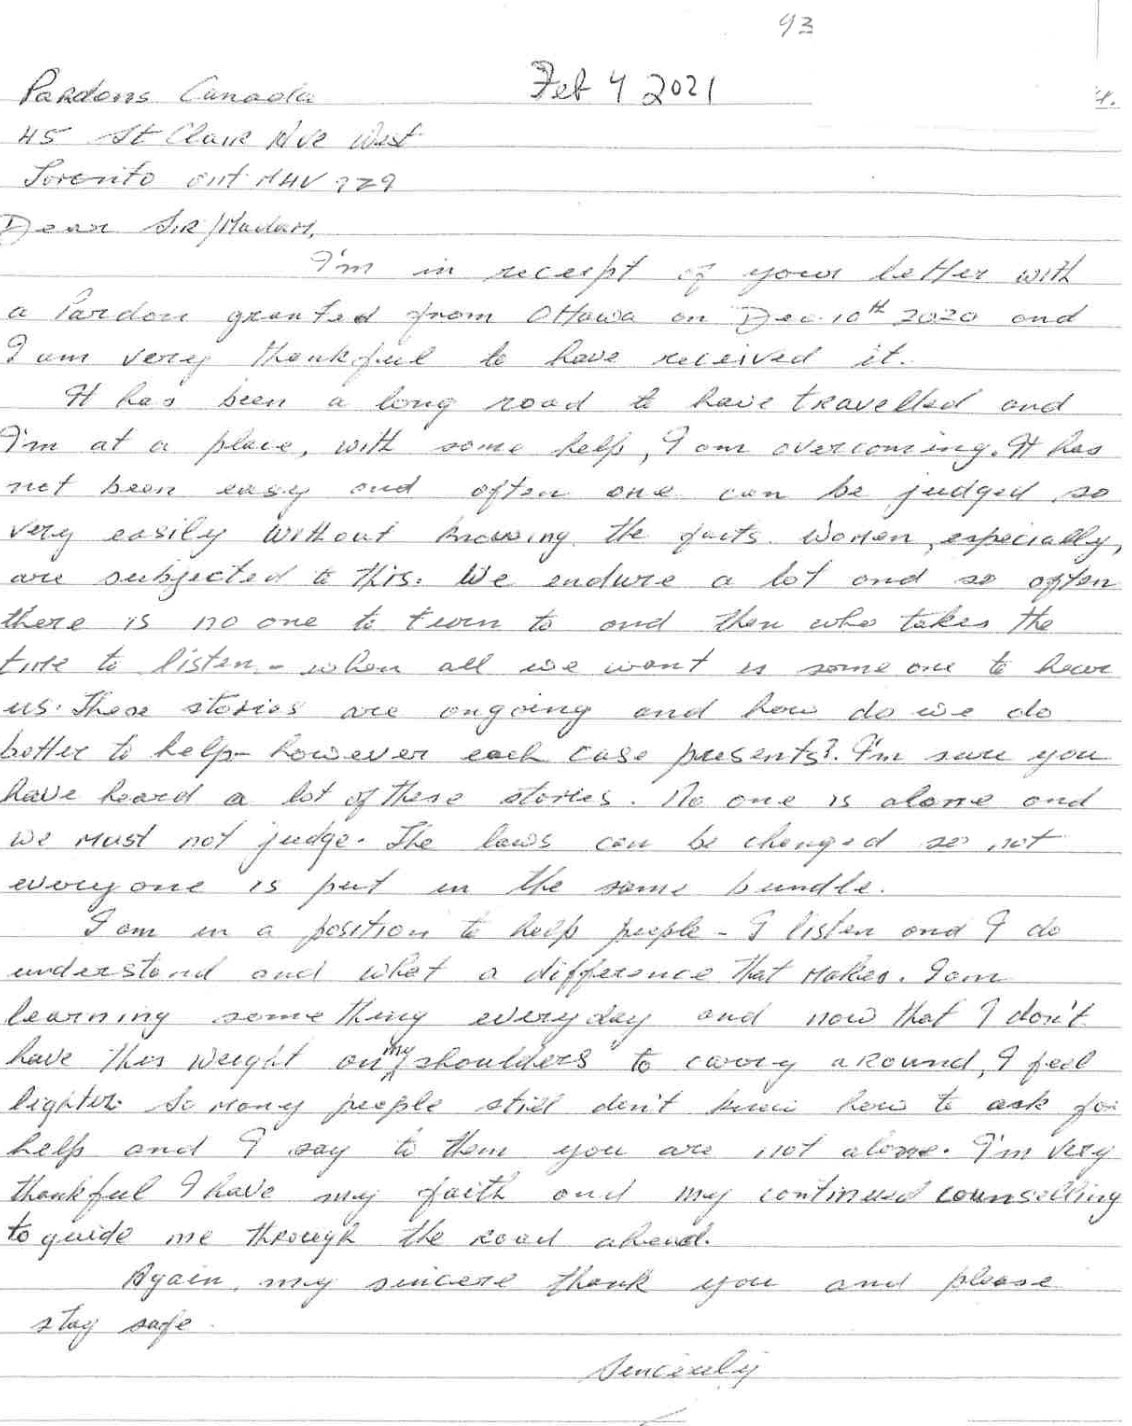 93
Pardons Canada Feb 4 2021
4.
45 St Clair Ave West
Toronto ont M4V
Dear Sir/Madam,
I'm in receipt of your letter with
a Pardon granted from Ottawa on Dec. 10th 2020 and
I am very thankful to have received it.
It has been a long road to have travelled and
I'm at a place, with some help, I am overcoming. It has
not been easy and often one can be judged so
very easily without knowing the facts. Women, especially,
are subjected to this. We endure a lot and so often
there is no one to turn to and then who takes the
time to listen - when all we want is some one to hear
us. These stories are ongoing and how do we do
better to help - however each case presents?. I'm sure you
have heard a lot of these stories. No one is alone and
we must not judge. The laws can be changed so not
everyone is put in the same bundle.
I am in a position to help people - I listen and I do
understand and what a difference that makes. I am
learning some thing everyday and now that I don't
have this weight on my shoulders to carry around, I feel
lighter. So many people still don't know how to ask for
help and I say to them you are not alone. I'm very
thankful I have my faith and my continued counselling
to guide me through the road ahead.
Again, my sincere thank you and please
stay safe.
Sincerely